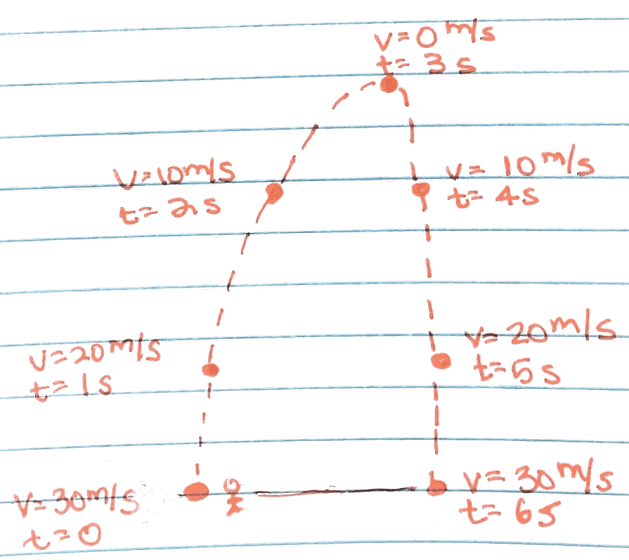 v=0 m/s
t= 3 s
v=10m/s
t= 2s
v= 10 m/s
t= 4s
v=20m/s
t= 1s
v=20m/s
t=5s
v=30m/s
t=0
v=30m/s
t=6s